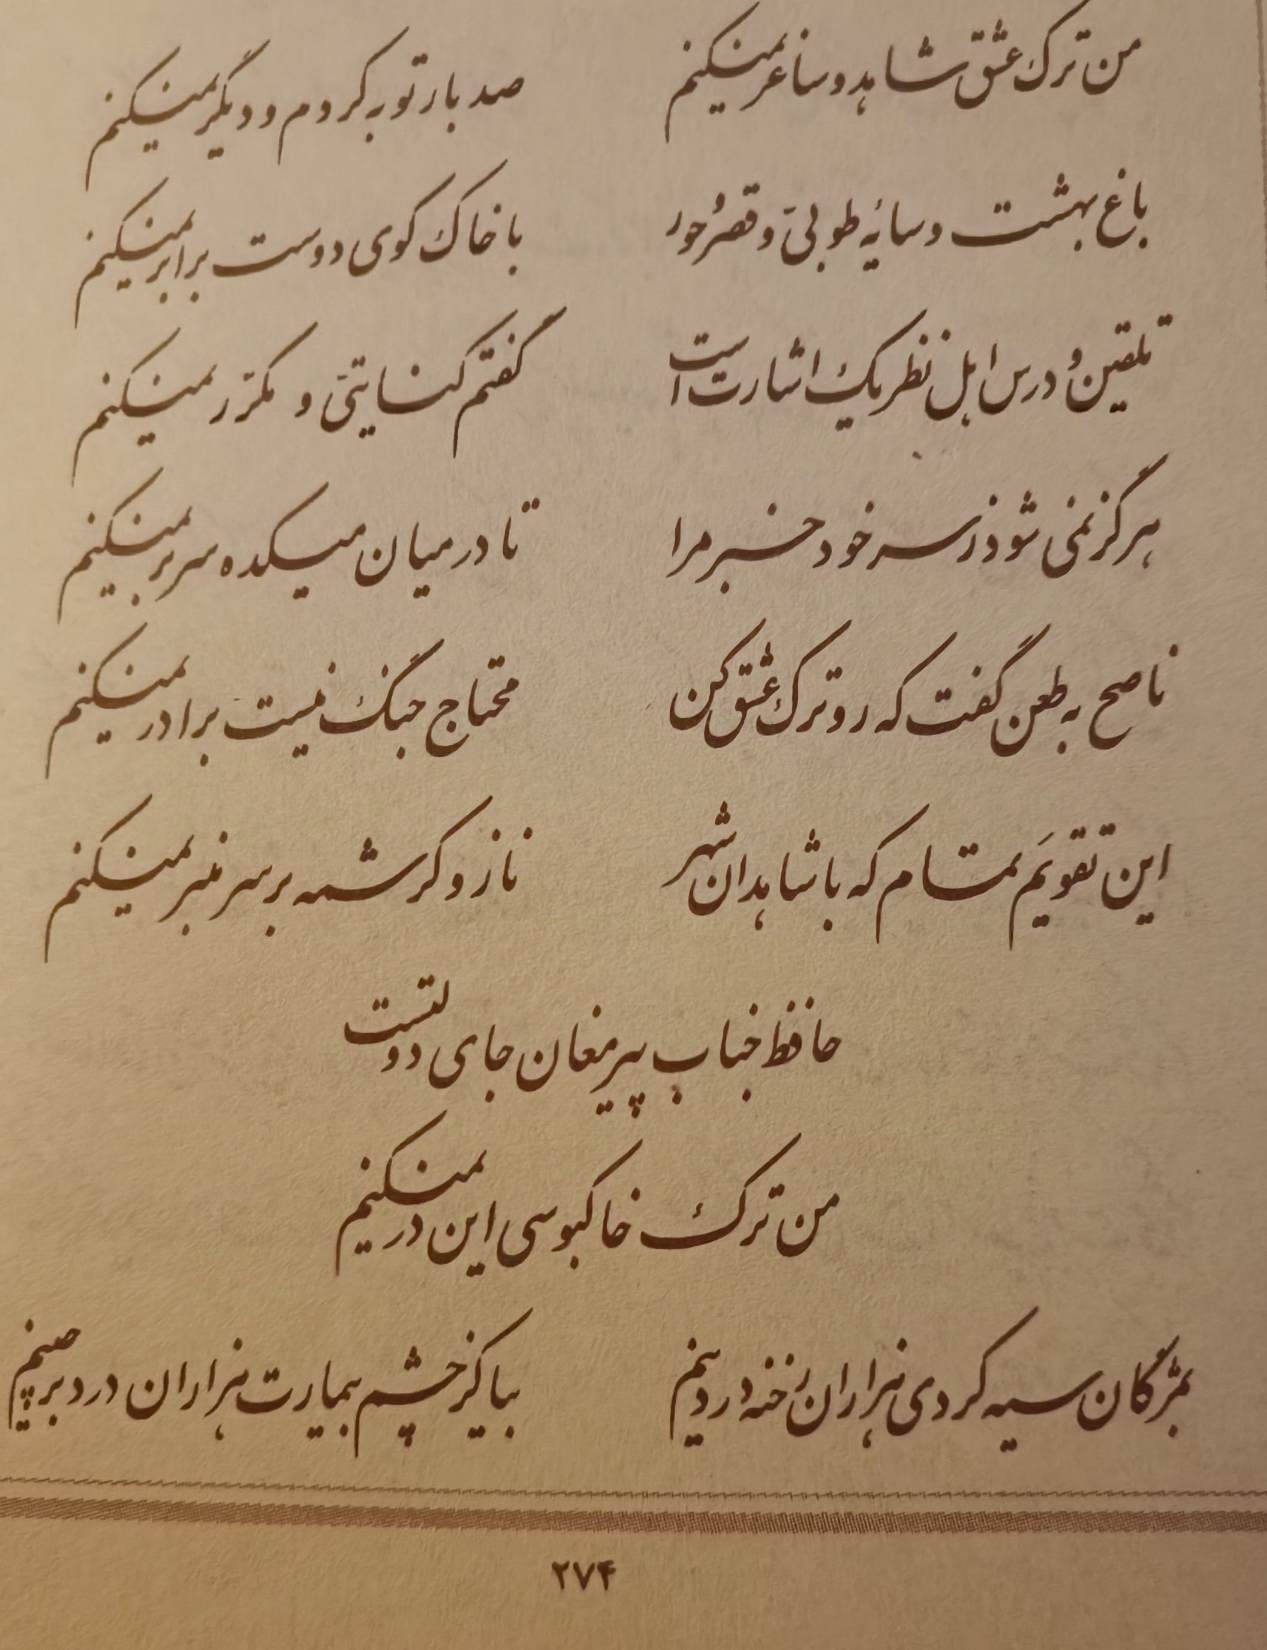 من ترک عشق شاهد و ساغر نمیکنم صد بار توبه کردم و دیگر نمیکنم
باغ بهشت و سایهٔ طوبیٰ و قصرُ حور با خاک کوی دوست برابر نمیکنم
تلقین و درس اهل نظر یک اشارت است گفتم کنایتی و مکرّر نمیکنم
هرگز نمی شود ز سر خود خبر مرا تا در میان میکده سر بر نمیکنم
ناصح به طعن گفت که رو ترک عشق کن محتاج جنگ نیست برادر نمیکنم
این تقویَم تمام که با شاهدان شهر ناز و کرشمه بر سر منبر نمیکنم
حافظ جناب پیر مغان جای دولتست
من ترک خاکبوسی این در نمیکنم
بمژگان سیه کردی هزاران رخنه در دینم بیا کز چشم بیمارت هزاران درد برچینم
۲۷۴